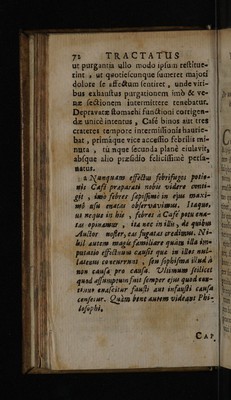 72 TRACTATUS
ut purgantia ullo modo ipsum restitue-
rint, ut quotiescunque sumeret majori
dolore se affectum sentiret, unde viri-
bus exhaustus purgationem imò & ve-
næ sectionem intermittere tenebatur.
Depravatæ stomachi functioni corrigen-
dæ unicè intentus, Café binos aut tres
crateres tempore intermissionis haurie-
bat, primàque vice accessio febrilis mi-
nuta, tũ nque secunda planè eiulavit,
absque alio præsidio felicissimè persa-
natus.
a Nunquam effectus febrifugos potio-
nis Café praparati nobis videre conti-
git, imò febres sapissimè in ejus maxi-
mo usu enatas observavimus. Itaque,
ut neque in his, febres à Café potu ena-
tas opinamur, ita nec in illis, de quibus
Auctor noster, eas fugatas credimus. Ni-
hil autem magis familiare quàm illa im-
putatio effectuum causis que in illos nul-
latenus concurrunt, seu sophisma illud à
non causa pro causa. Ultimum scilicet
quod assumptum fuit semper ejus quod eve-
nit fausti aut infausti causa
censetur. Quàm bene autem videant Phi-
losophi.
CAP.